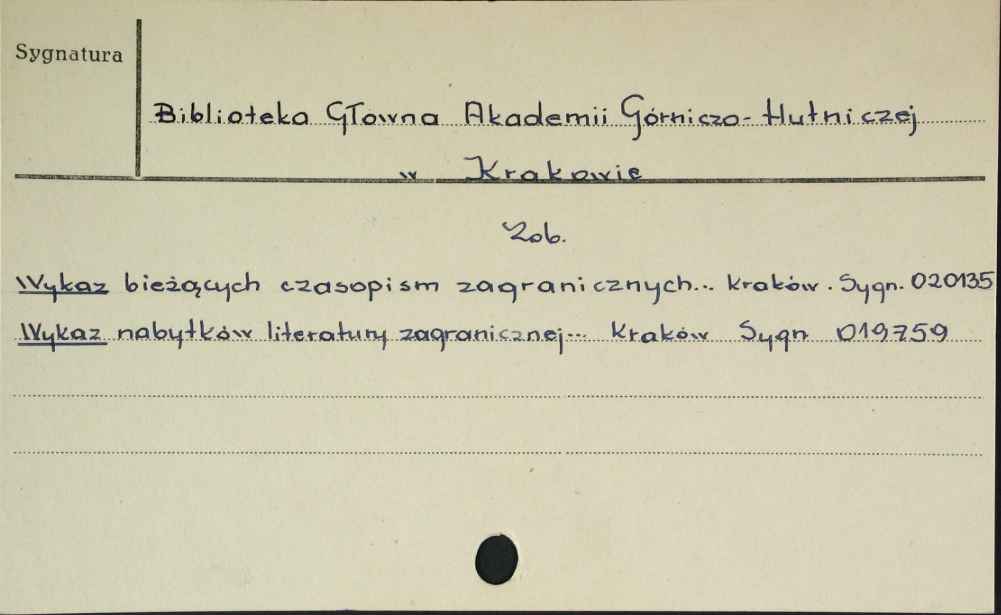 Sygnatura
Biblioteka Głowna Akademii Górniczo-Hutniczej
w Krakowie
Zob.
Wykaz bieżących czasopism zagranicznych... Kraków. Sygn. 020135
Wykaz nabytków literatury zagranicznej... Kraków Sygn 019759